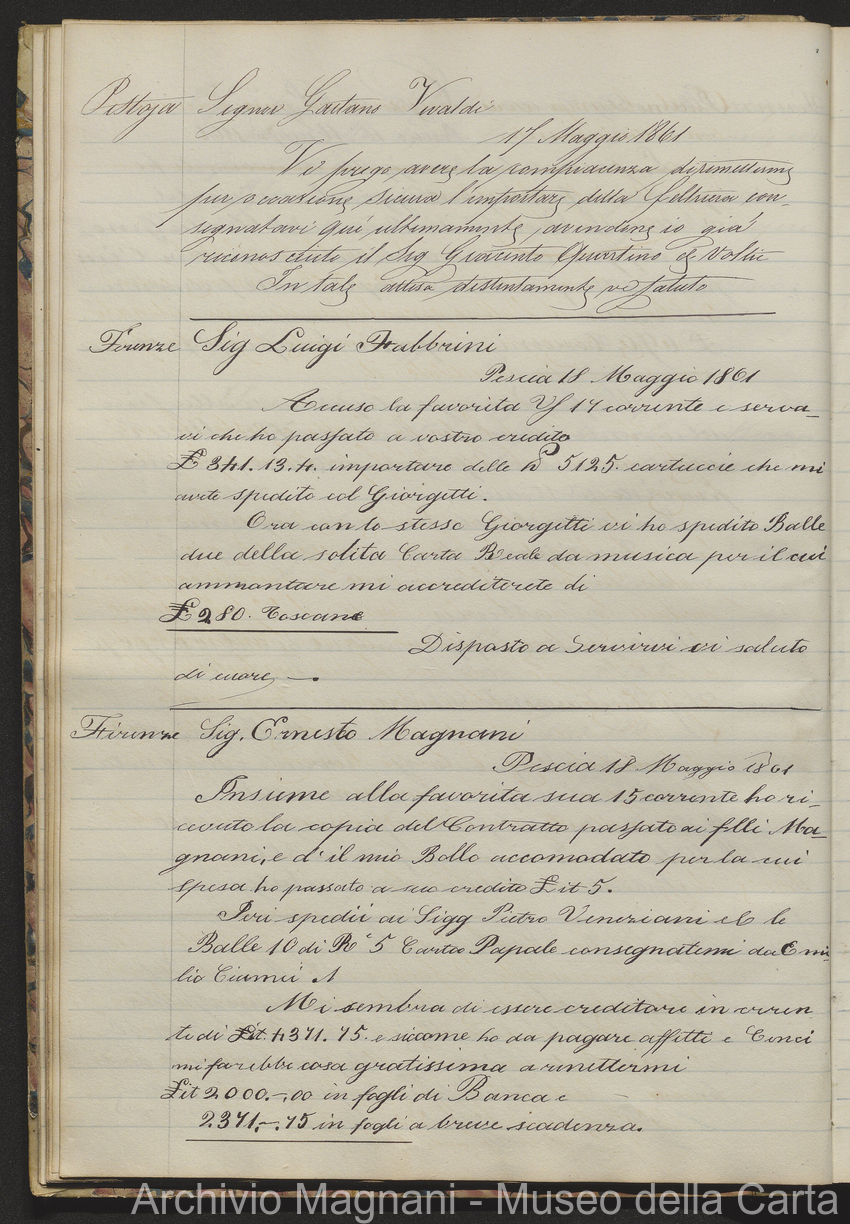 Pistoja Signor Gaetano Vivaldi
17 Maggio 1861
Vi prego avere la compiacenza di rimettermi
per occasione sicura l'importare della feltriera con-
segnatavi qui ultimamente, avendone io già
riconosciuto il Sig Giacinto Quartino di Voltri
In tale attesa distintamente vi saluto
Firenze Sig Luigi Fabbrini
Pescia 18 Maggio 1861
Accuso la favorita Vs 17 corrente e serva-
vi che ho passato a vostro credito
£ 341. 13. 4. importare delle 5125. cartuccie che mi
avete spedito col Giorgetti.
Ora con lo stesso Giorgetti vi ho spedito Balle
due della solita Carta Reale da musica per il cui
ammontare mi accrediterete di
£ 280. Toscane
Disposto a Servirvi vi saluto
di cuore —.
Firenze Sig. Ernesto Magnani
Pescia 18 Maggio 1861
Insieme alla favorita sua 15 corrente ho ri-
cevuto la copia del Contratto passato ai flli Ma-
gnani, e d'il mio Bollo accomodato per la cui
spesa ho passato a suo credito £it 5.
Jeri spedii ai Sigg Pietro Veneziani e C le
Balle 10 di R 5 Carta Papale consegnatemi da Emi-
lio Ciomei
Mi sembra di essere creditore in corren
te di £it. 4371. 75. e siccome ho da pagare affitti e Cenci
mi farebbe cosa gratissima a rimettermi
£it 2000.-,00 in fogli di Banca e
2.371.-.75 in fogli a breve scadenza.
Archivio Magnani - Museo della Carta